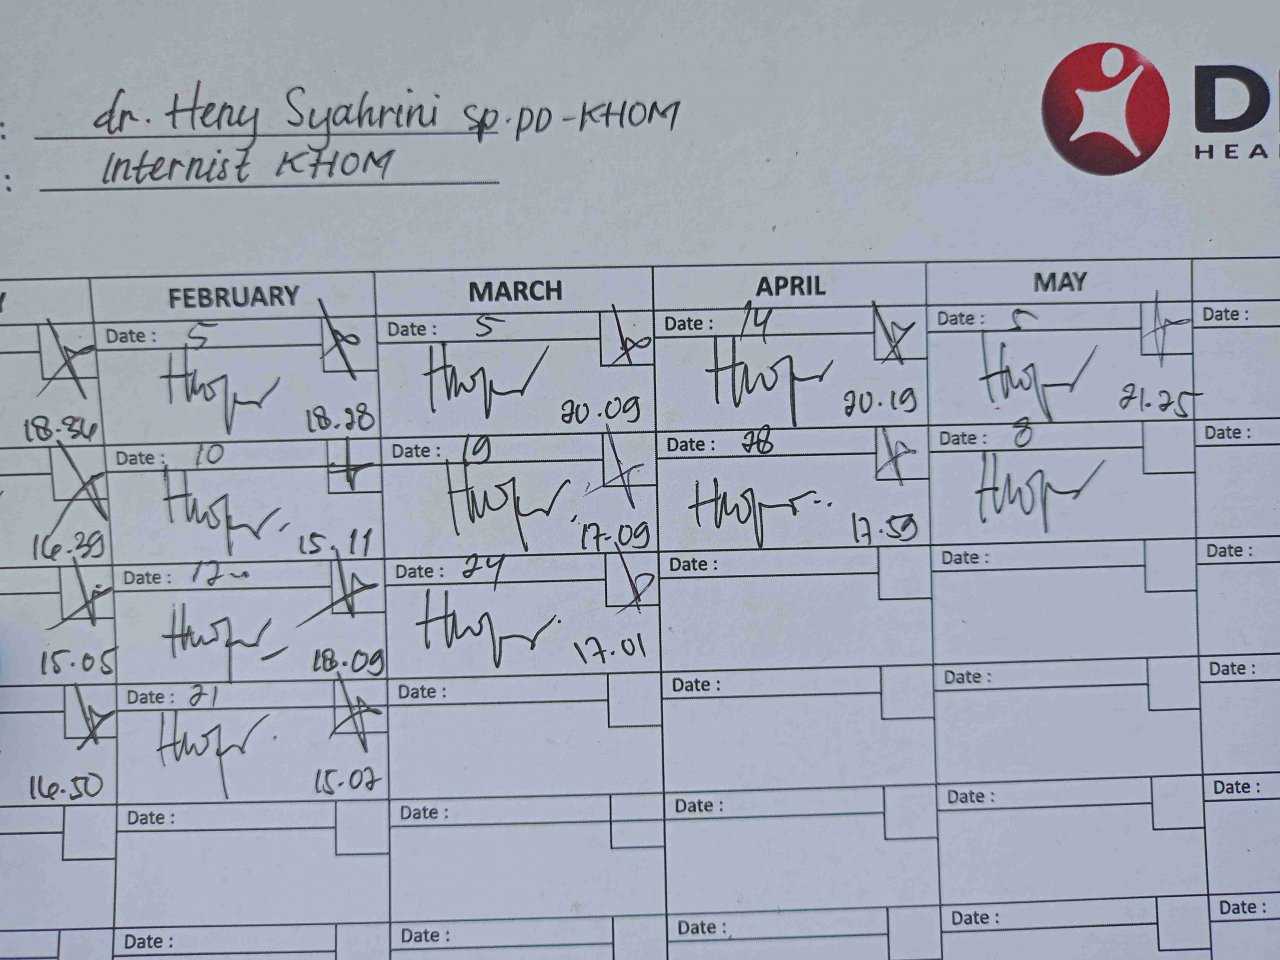 : dr. Heny Syahrini Sp.PD-KHOM
: Internist KHOM
D
HEA
FEBRUARY MARCH APRIL MAY
Date : 5 Date : 5 Date : 14 Date : 5 Date :
18.34 18.28 20.09 20.19 21.25
Date : 10 Date : 19 Date : 28 Date : 8 Date :
16.39 15.11 17.09 17.59
Date : 12 Date : 24 Date : Date : Date :
15.05 18.09 17.01
Date : 21 Date : Date : Date : Date :
16.50 15.07
Date : Date : Date : Date : Date :
Date : Date : Date : Date : Date :